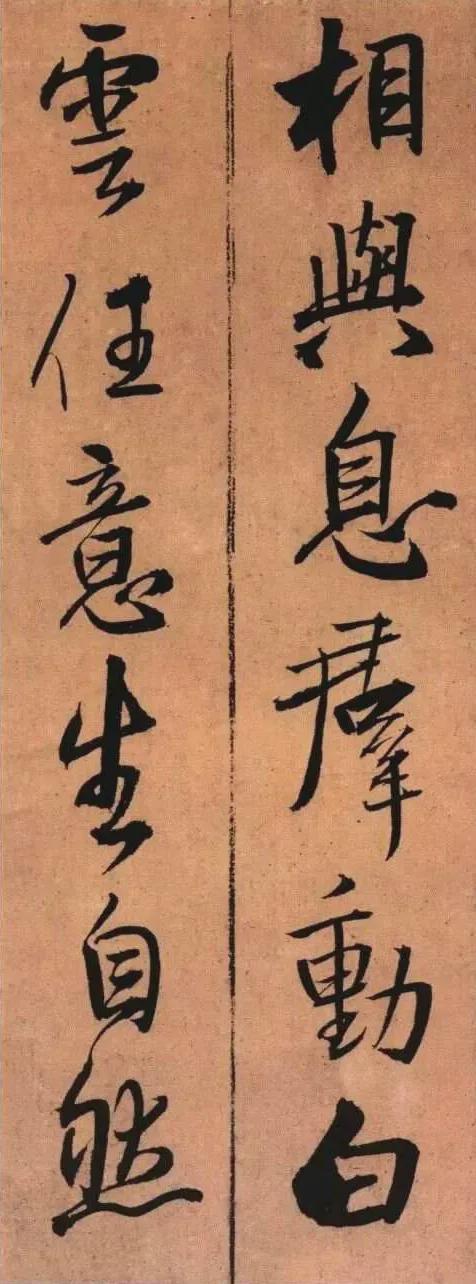 相與息羣動白
雲任意生自然